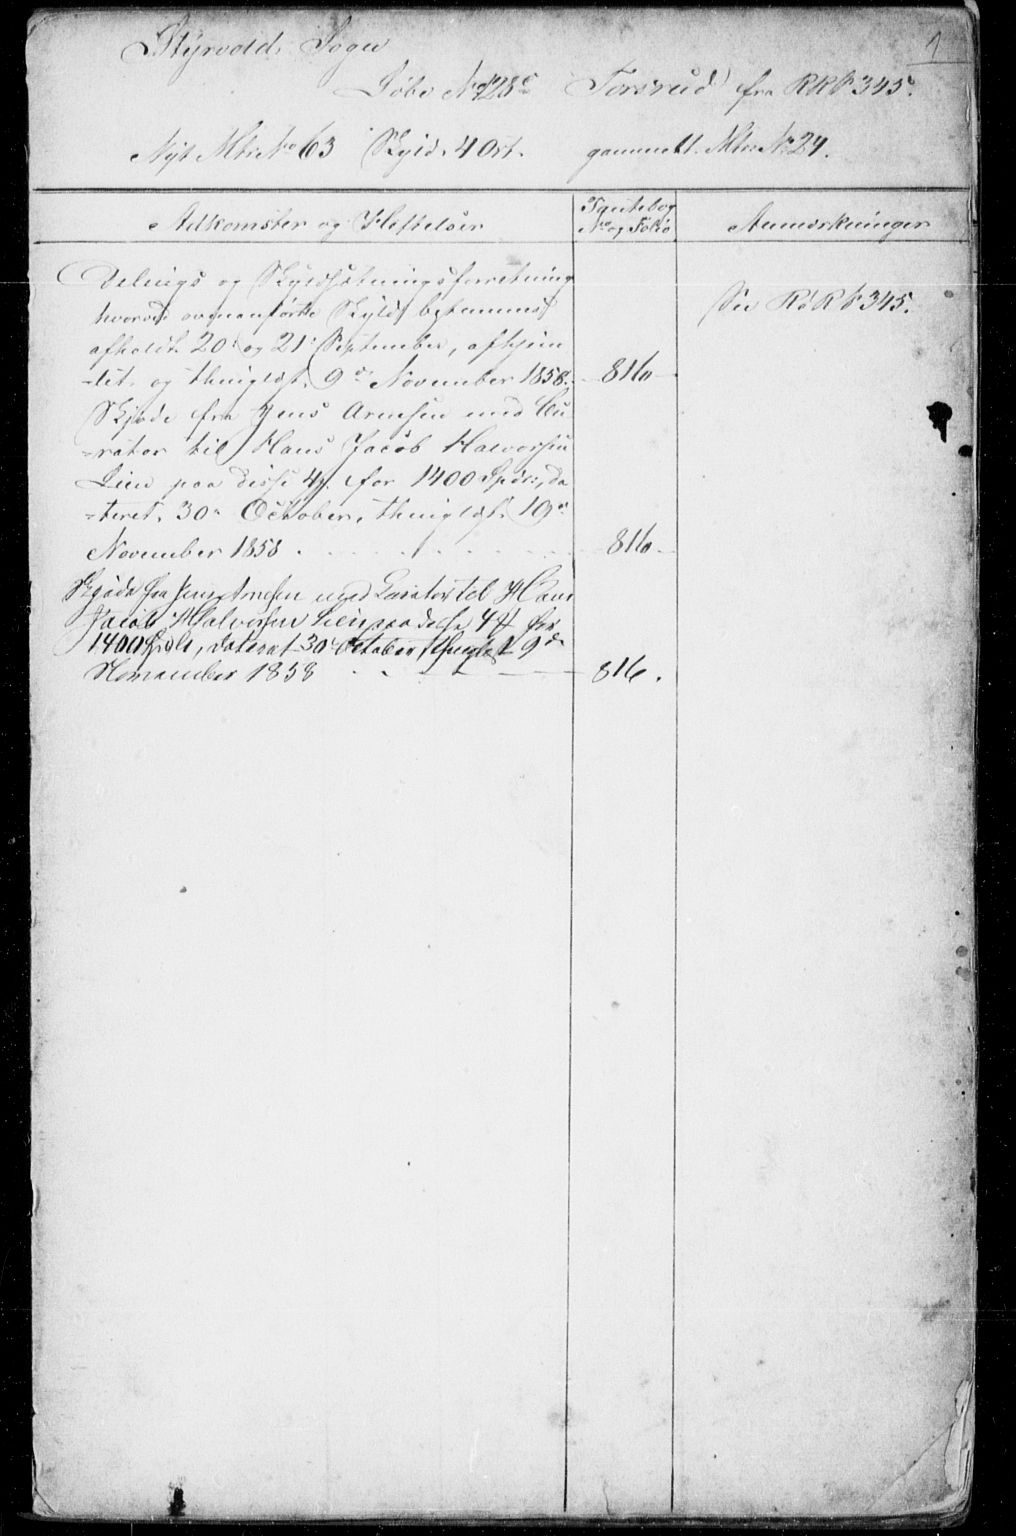 1
Styrvolds Sogn
Løbe No 128c Torsrud fra R R F 345.
Nyt Mtr No 63 Skyld. 4 Ort. gammelt. Mtr. Nr 24.
Adkomster og Heftelser
Pantebog
No og Folio
Anmærkninger
Delings og Skyldsætningsforretning
hvorved ovenanførte Skyld bestemmes
afholdt 20de og 21de September, afhjem
-let og thinglæst. 9de November 1858. 816
See R R F 345.
Skjøde fra Jens Arnesen med Cu-
-rator til Hans Jacob Halvorsen
Lien paa disse 4 for 1400 Spdlr, da
-teret. 30te October, thinglæst. 19de
November 1858 816
Skjøde fra Jens Arnesen med Curator til Hans
Jacob Halvorsen Lien paa disse 4 for
1400 Spdlr, dateret 30te October, thinglæst 9de
November 1858 816.